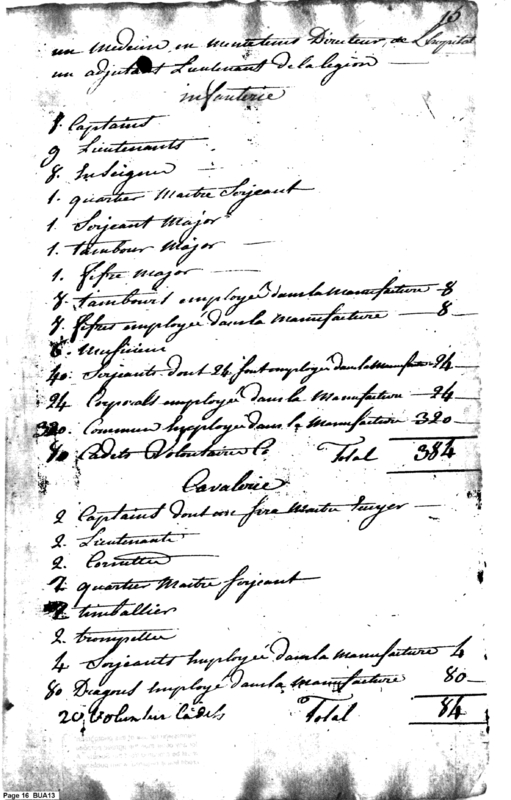 16
un Medecin, en meme tems Directeur, de L'hopital
un adjutant Lieutenant de la legion
infanterie
8 Captains
9 Lieutenants
8. Enseigne
1. quartier Maitre Serjeant
1. Serjeant Major
1. tambour Major
1. fifre major
8. tambours employeé dans la Manufacture 8
8. fifres employeé dans la Manufacture 8
Musicien
40. Serjeants dont 24 font employeé dans la Manufacture 24
24 Corporals employeé dans la Manufacture 24
320. Commun employeé dans la Manufacture 320
80 Cadets Volontaire Co Total 384
Cavalerie
2 Captains dont une fera Maitre Ecuyer
2. Lieutenants
2. Cornette
2 quartier Maitre Serjeant
timballier
2. trompette
4 Serjeants employeé dans la Manufacture 4
80 Dragons employeé dans la Manufacture 80
20 Volunteer Cadets Total 84
Page 16 BUA13